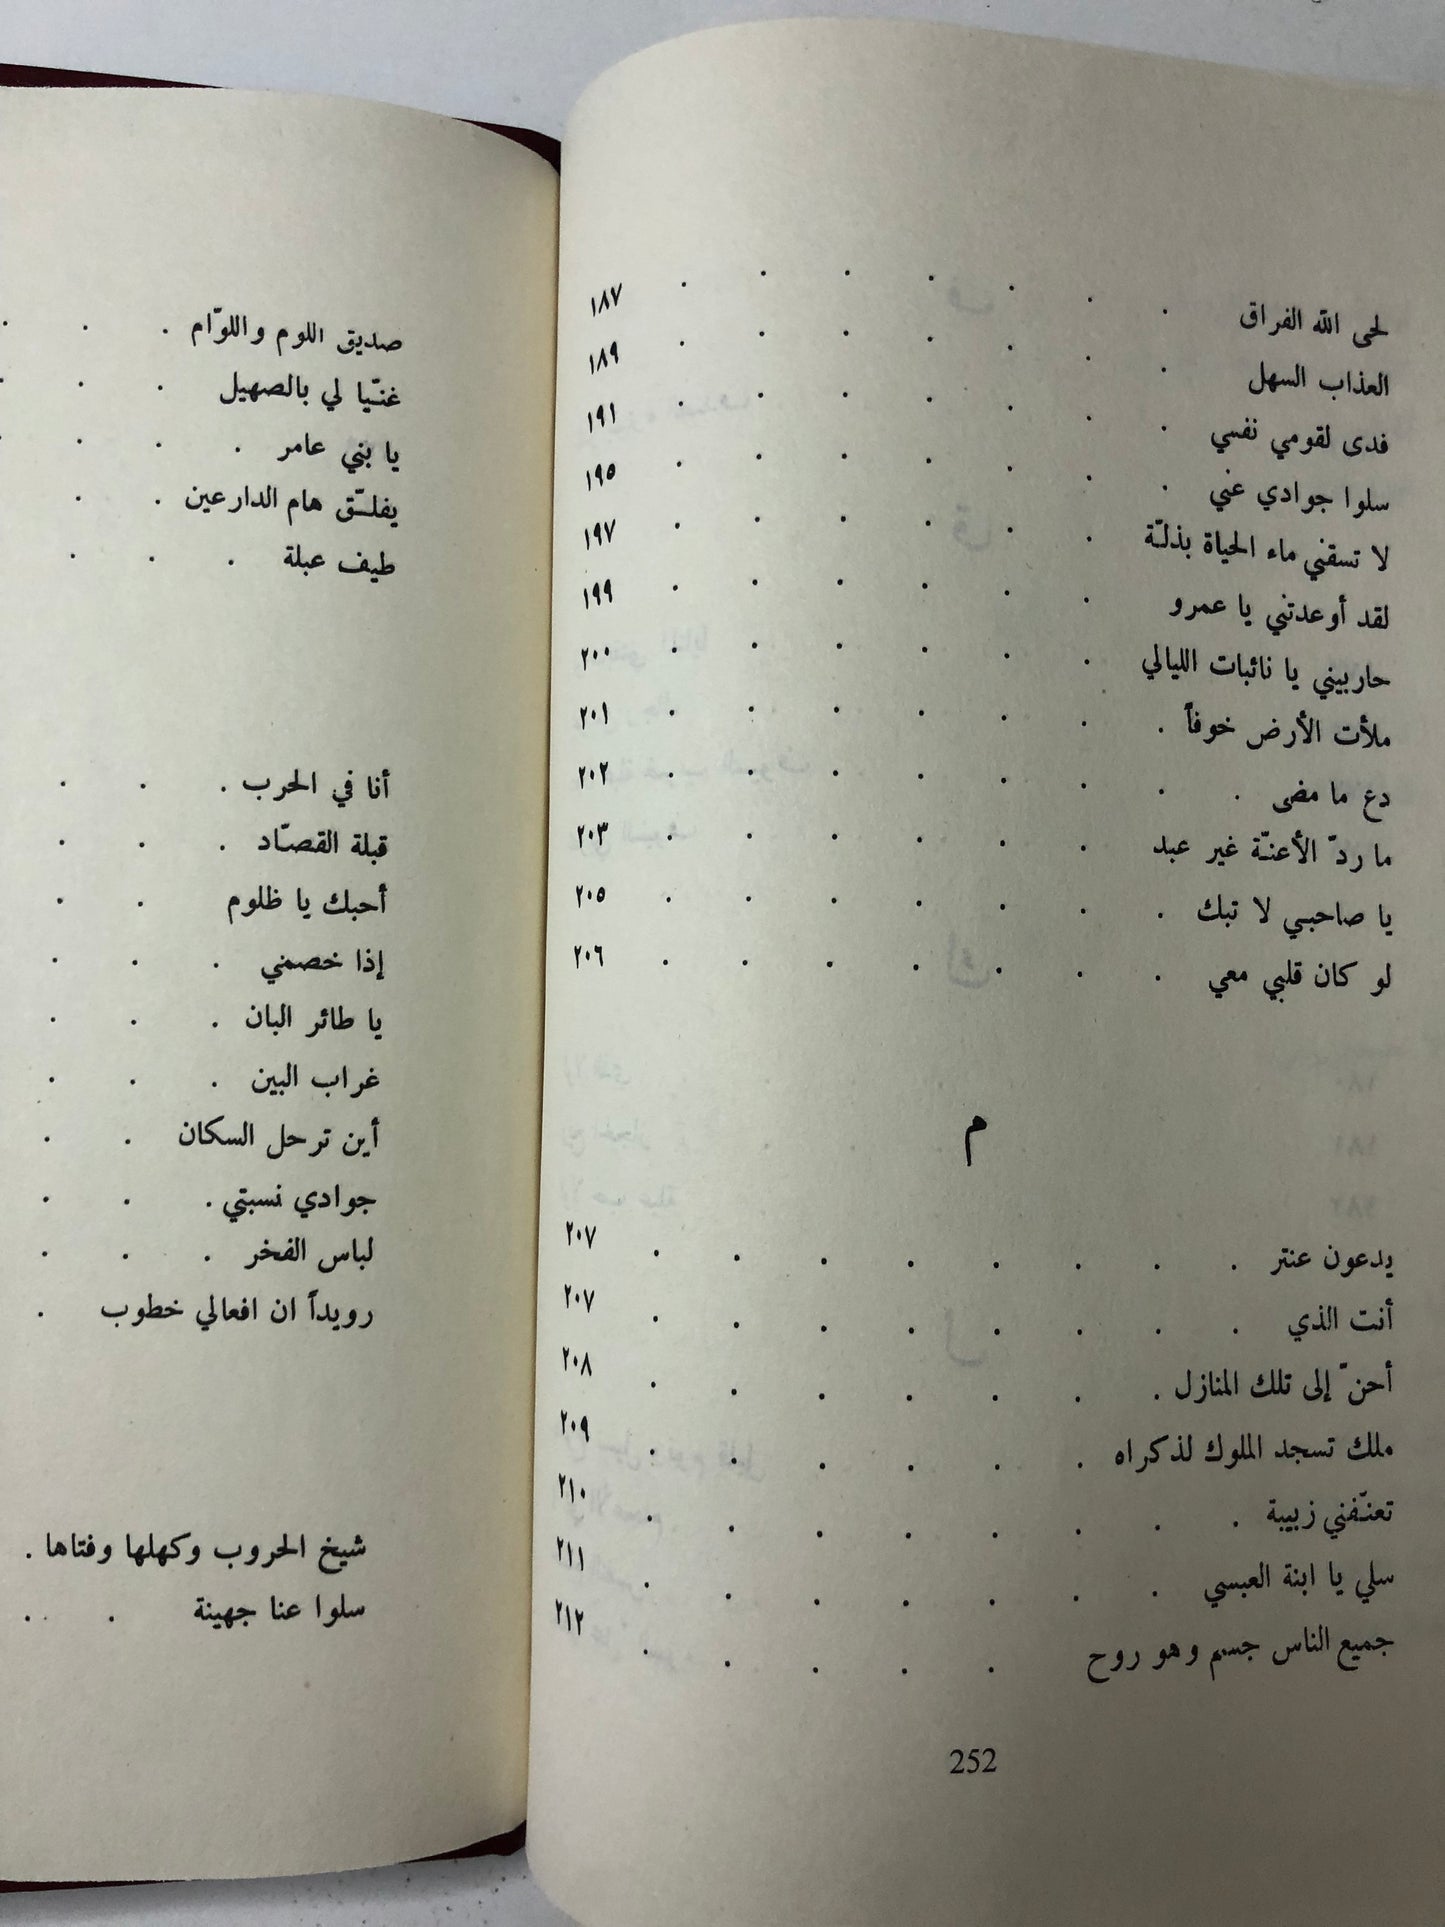 لحى الله الفراق . . . . . . . ١٨٧
العذاب السهل . . . . . . . ١٨٩
فدى لقومي نفسي . . . . . . . ١٩١
سلوا جوادي عني . . . . . . . ١٩٥
لا تسقني ماء الحياة بذلّة . . . . . . ١٩٧
لقد أوعدتني يا عمرو . . . . . . ١٩٩
حاربيني يا نائبات الليالي . . . . . . ٢٠٠
ملأت الأرض خوفاً . . . . . . . ٢٠١
دع ما مضى . . . . . . . . ٢٠٢
ما ردّ الأعنّة غير عبد . . . . . . ٢٠٣
يا صاحبي لا تبك . . . . . . . ٢٠٥
لو كان قلبي معي . . . . . . . ٢٠٦
م
يدعون عنتر . . . . . . . . ٢٠٧
أنت الذي . . . . . . . . ٢٠٧
أحنّ إلى تلك المنازل . . . . . . . ٢٠٨
ملك تسجد الملوك لذكراه . . . . . . ٢٠٩
تعنّفني زبيبة . . . . . . . . ٢١٠
سلي يا ابنة العبسي . . . . . . . ٢١١
جميع الناس جسم وهو روح . . . . . ٢١٢
252
صديق اللوم واللوّام . . .
غنّيا لي بالصهيل . . .
يا بني عامر . . . .
يفلّق هام الدارعين . .
طيف عبلة . . .
أنا في الحرب . . .
قبلة القصّاد . . .
أحبك يا ظلوم . .
إذا خصمني . . .
يا طائر البان . . .
غراب البين . . .
أين ترحل السكان . .
جوادي نسبتي . . .
لباس الفخر . . .
رويداً ان افعالي خطوب .
شيخ الحروب وكهلها وفتاها .
سلوا عنا جهينة . . .